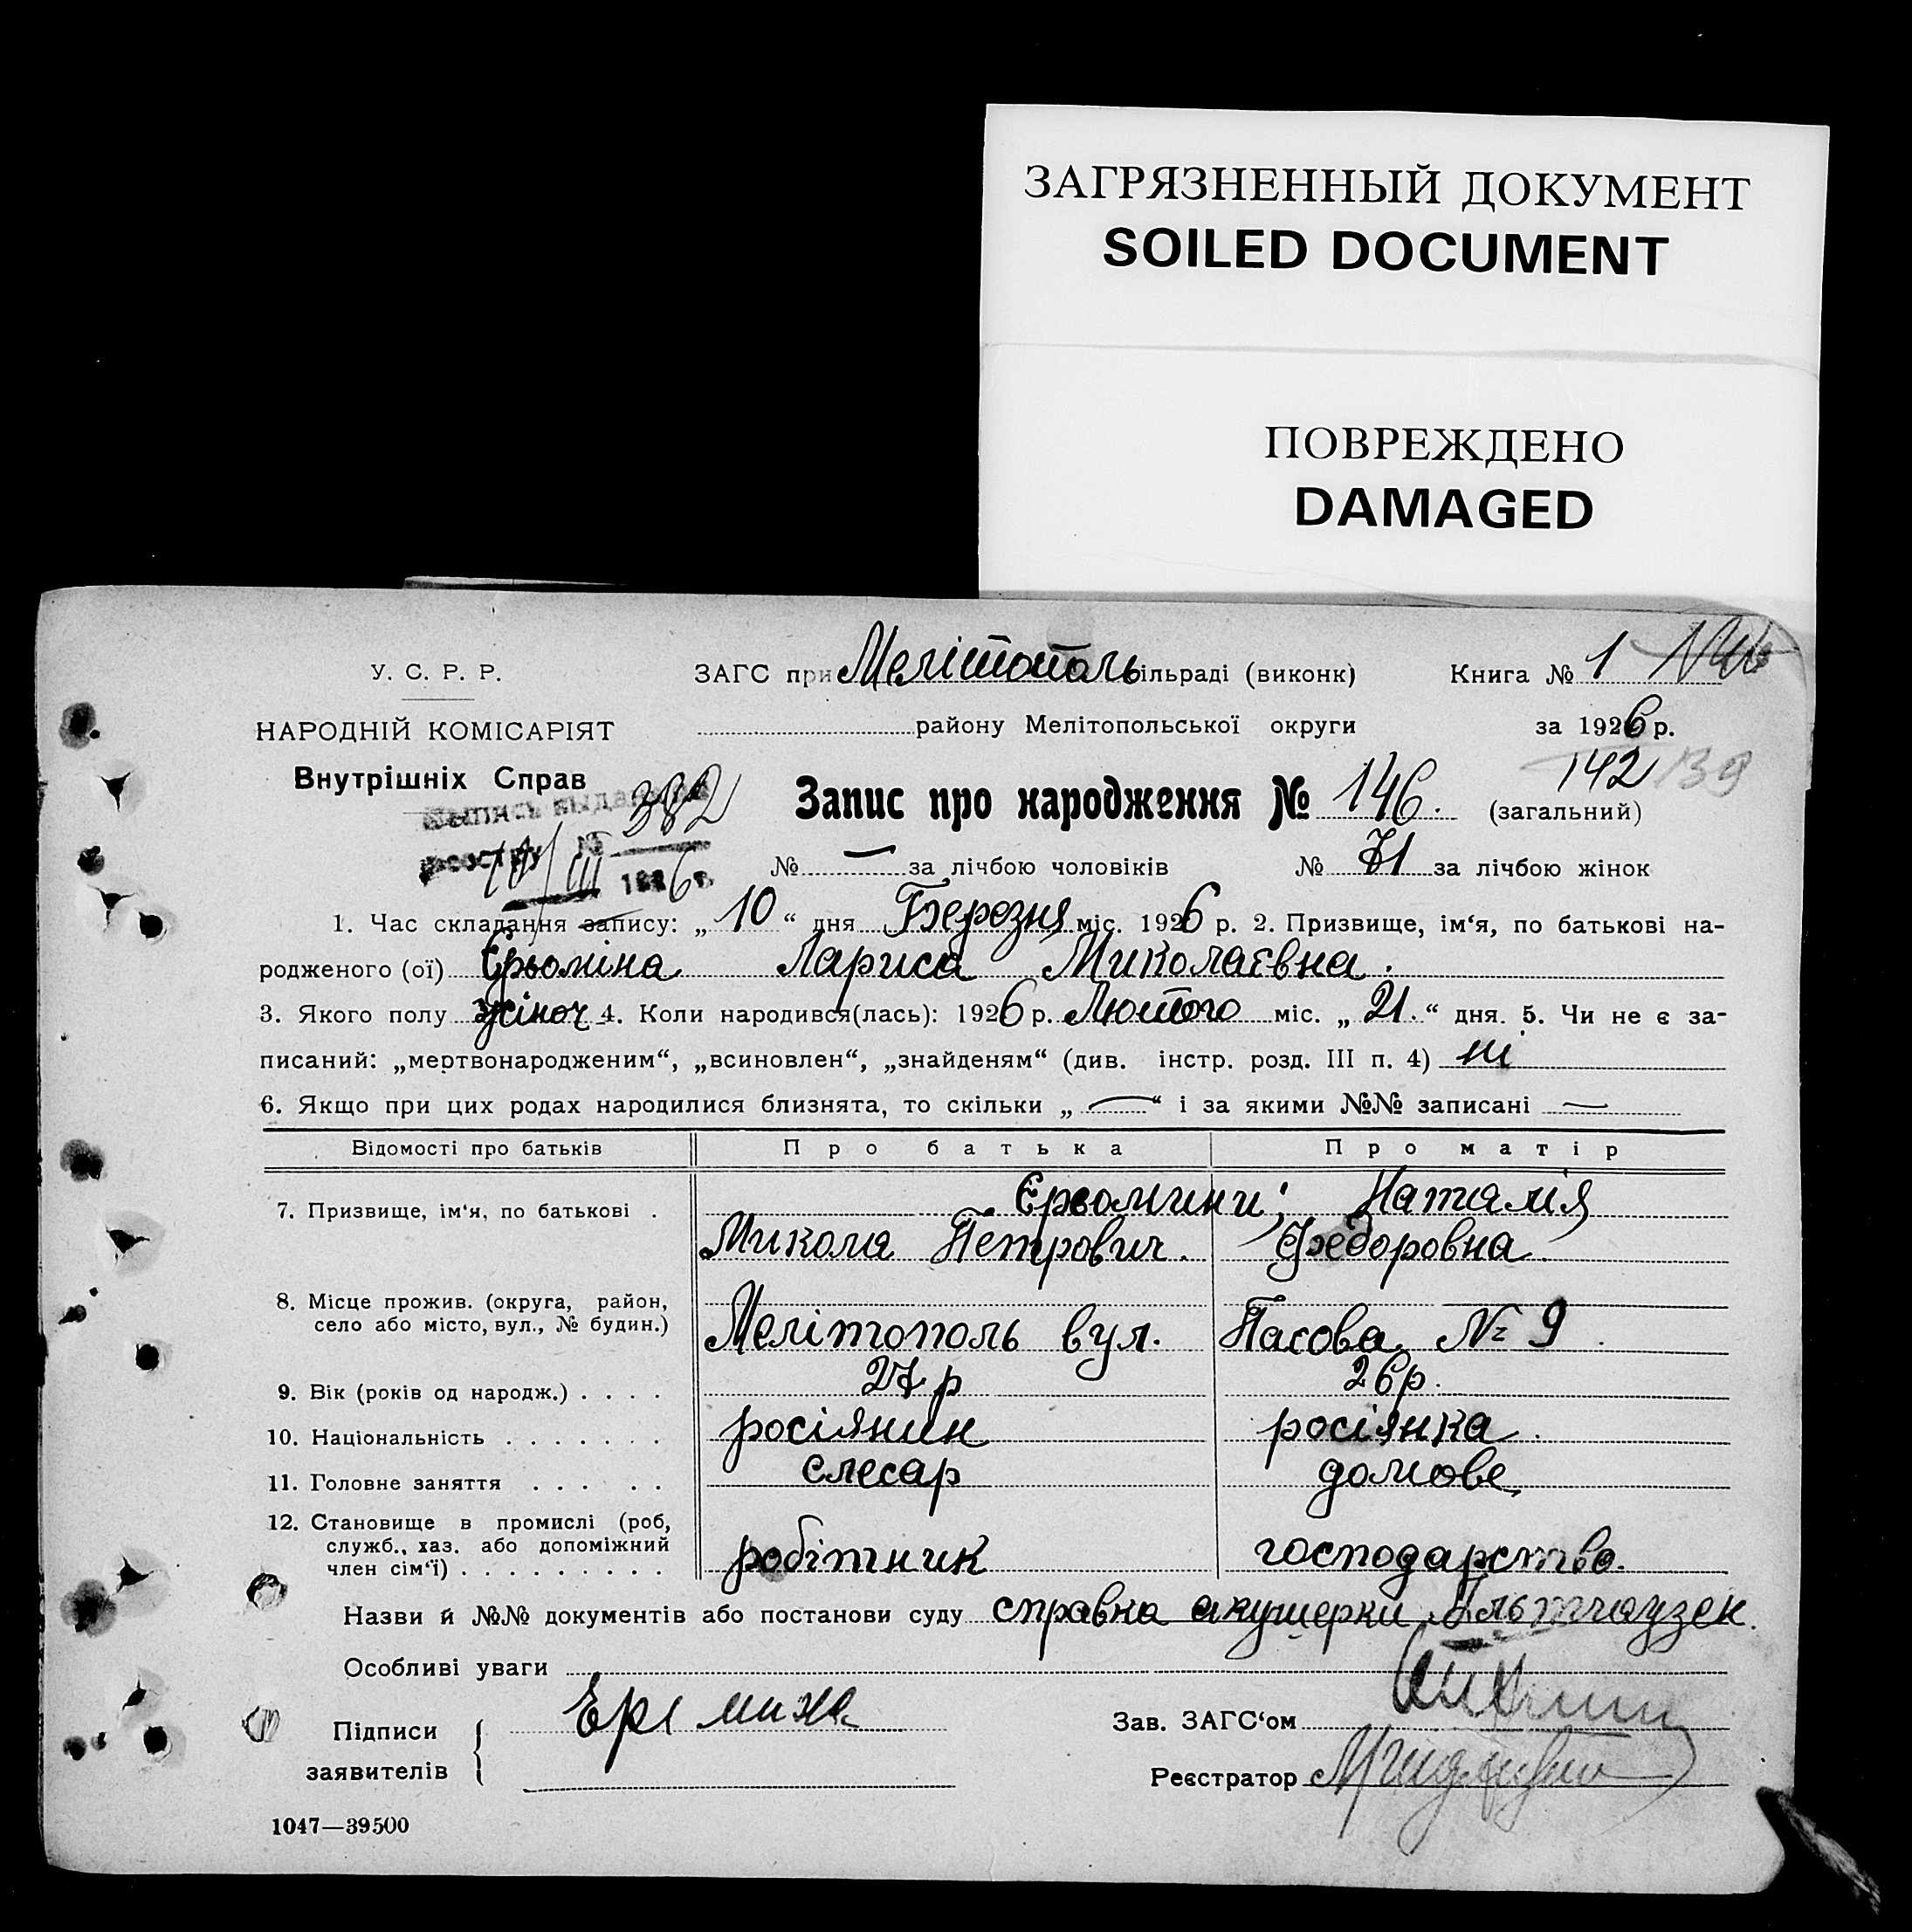 ЗАГРЯЗНЕННЫЙ ДОКУМЕНТ
SOILED DOCUMENT
ПОВРЕЖДЕНО
DAMAGED
У. С. Р. Р. ЗАГС при Мелітополь ільраді (виконк) Книга № 1
НАРОДНІЙ КОМІСАРІЯТ района району Мелітопольської округи за 1926 р.
Внутрішніх Справ
142 139
382
Запис про народження № 146. (загальний)
№ — за лічбою чоловіків № 71 за лічбою жінок
III 1926 г.
1. Час складання запису: „ 10 “ дня Березня міс. 1926 р. 2. Призвище, ім‘я, по батькові на-
родженого (ої) Єрьоміна Лариса Миколаєвна.
3. Якого полу жіноч 4. Коли народився(лась): 1926 р. Лютого міс. „ 21. “ дня. 5. Чи не є за-
писаний: „мертвонародженим“, „всиновлен“, „знайденям“ (див. інстр. розд. III п. 4) ні
6. Якщо при цих родах народилися близнята, то скільки „ — “ і за якими №№ записані —
Відомості про батьків Про батька Про матір
7. Призвище, ім‘я, по батькові . Єрьомини; Наталія
Микола Петрович. Федоровна.
8. Місце прожив. (округа, район,
село або місто, вул., № будин.) Мелітополь вул. Пасова № 9.
9. Вік (років од народж.) . . . . 27 р 26 р.
10. Національність . . . . . . . росіянин росіянка.
11. Головне заняття . . . . . слесар домове
12. Становище в промислі (роб,
служб., хаз. або допоміжний
член сім‘ї) . . . . . . . . . робітник господарство.
Назви й №№ документів або постанови суду справка акушерки
Особливі уваги
Підписи
заявителів
Зав. ЗАГС‘ом
Реєстратор
1047—39500